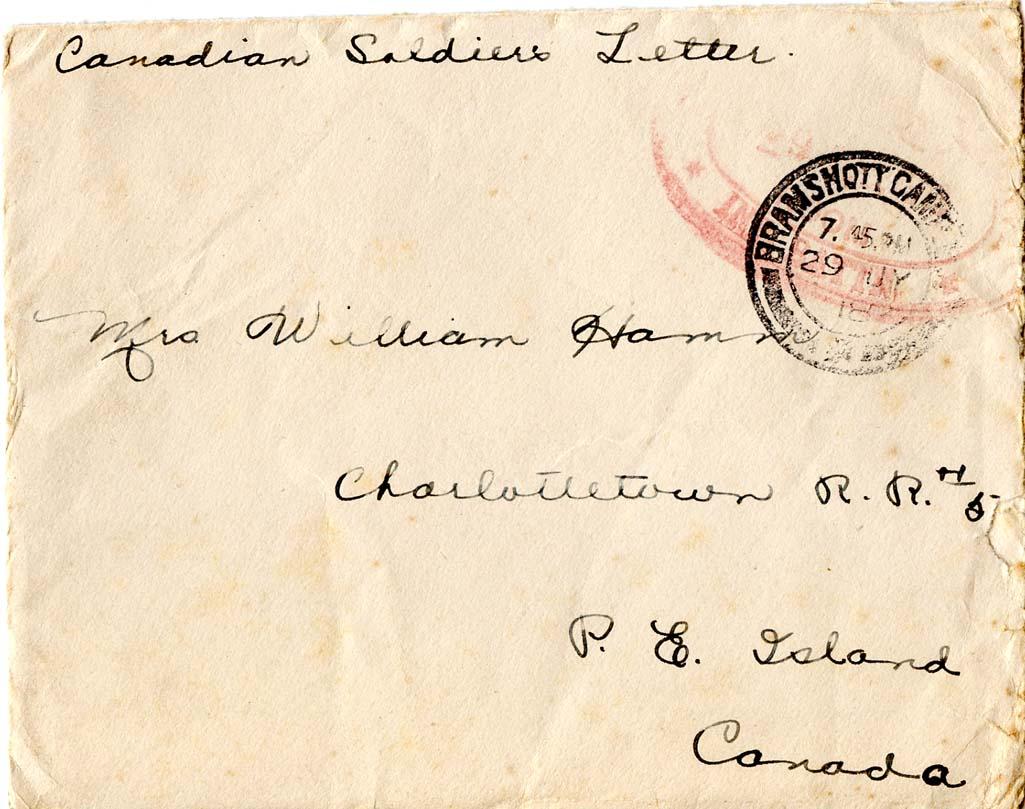 Canadian Soldiers Letter.
BRAMSHOTT CAMP
7.45 PM
29 JY
18
Mrs William Hamm
Charlottetown R. R. # 5
P. E. Island
Canada